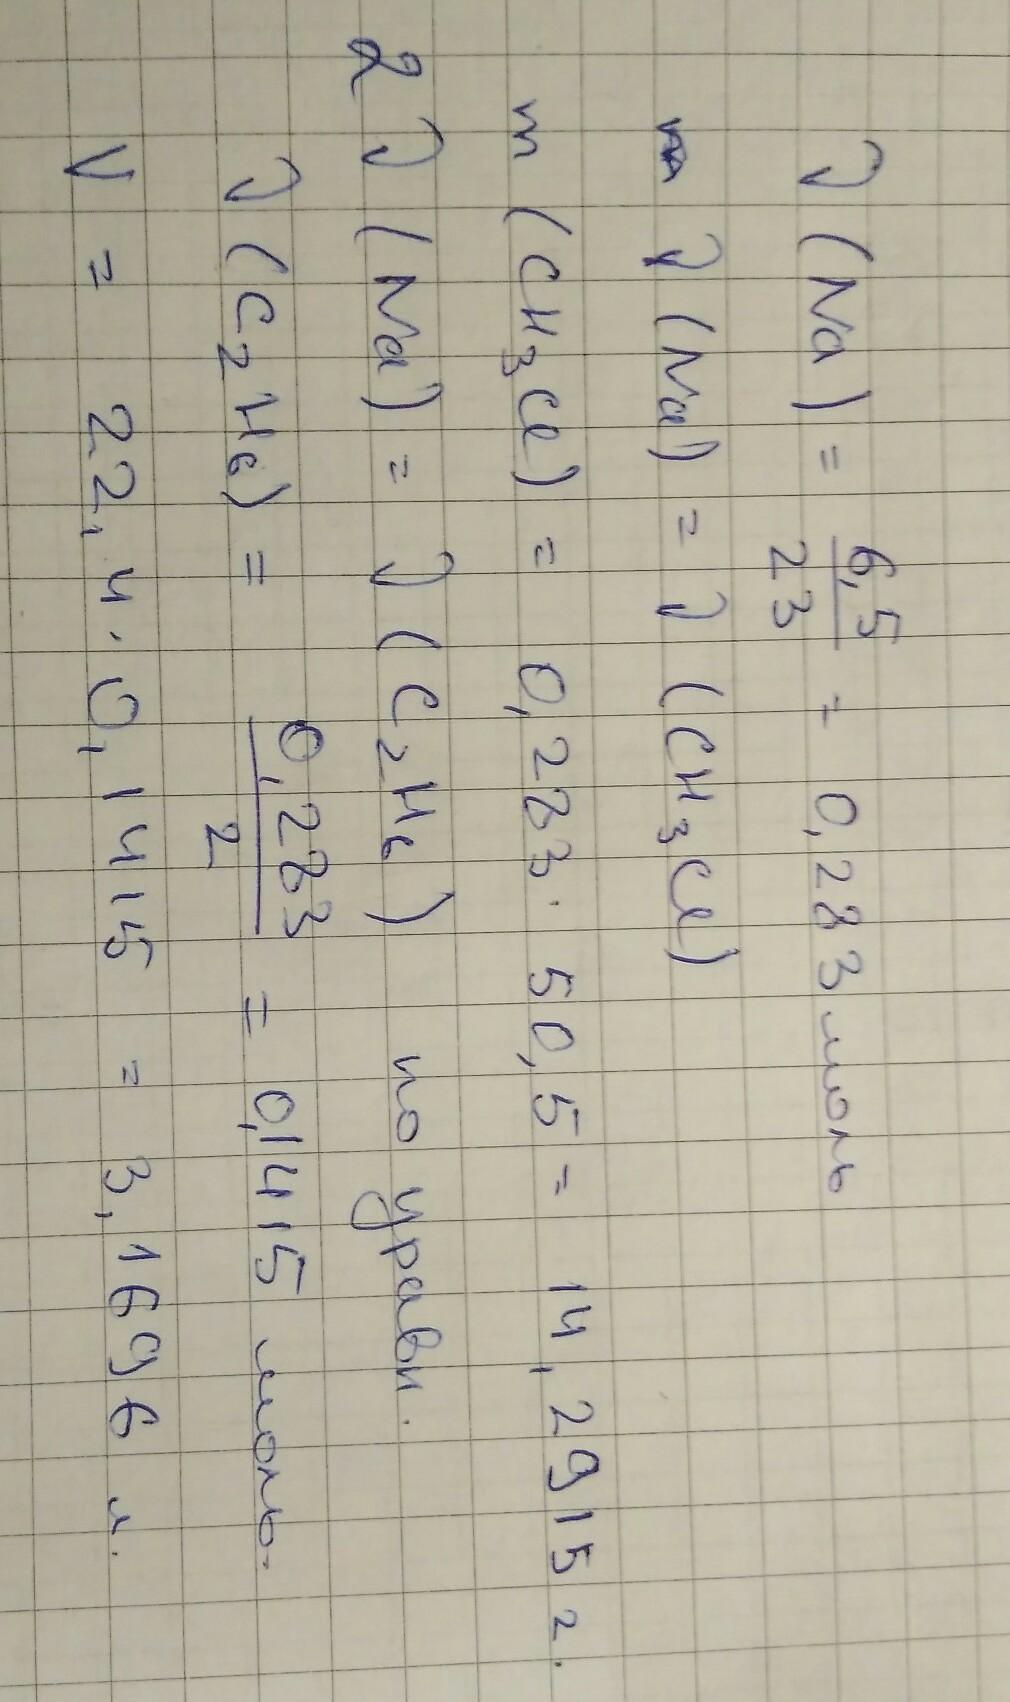 ν(Na) = 6,5/23 = 0,283 моль
ν(Na) = ν(CH₃Cl)
m(CH₃Cl) = 0,283 · 50,5 = 14,2915 г.
2ν(Na) = ν(C₂H₆) по уравн.
ν(C₂H₆) = 0,283/2 = 0,1415 моль.
V = 22,4 · 0,1415 = 3,1696 л.